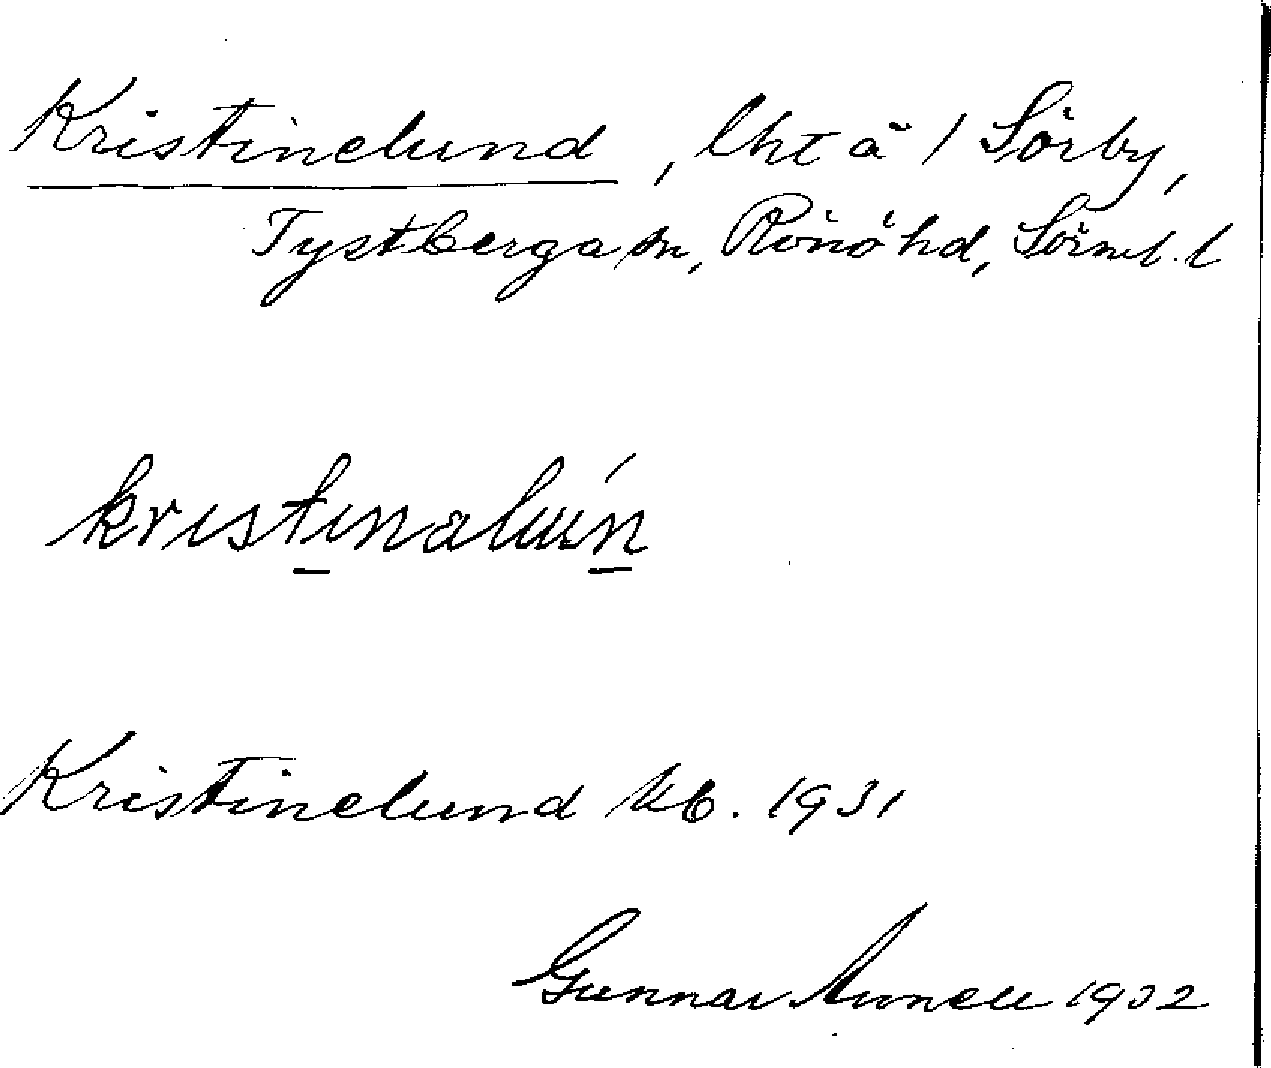 Kristinelund, lht å 1 Sörby,
Tystberga sn, Rönö hd, Sörml. l
kristinalun
Kristinelund kb. 1931
Gunnar 1932